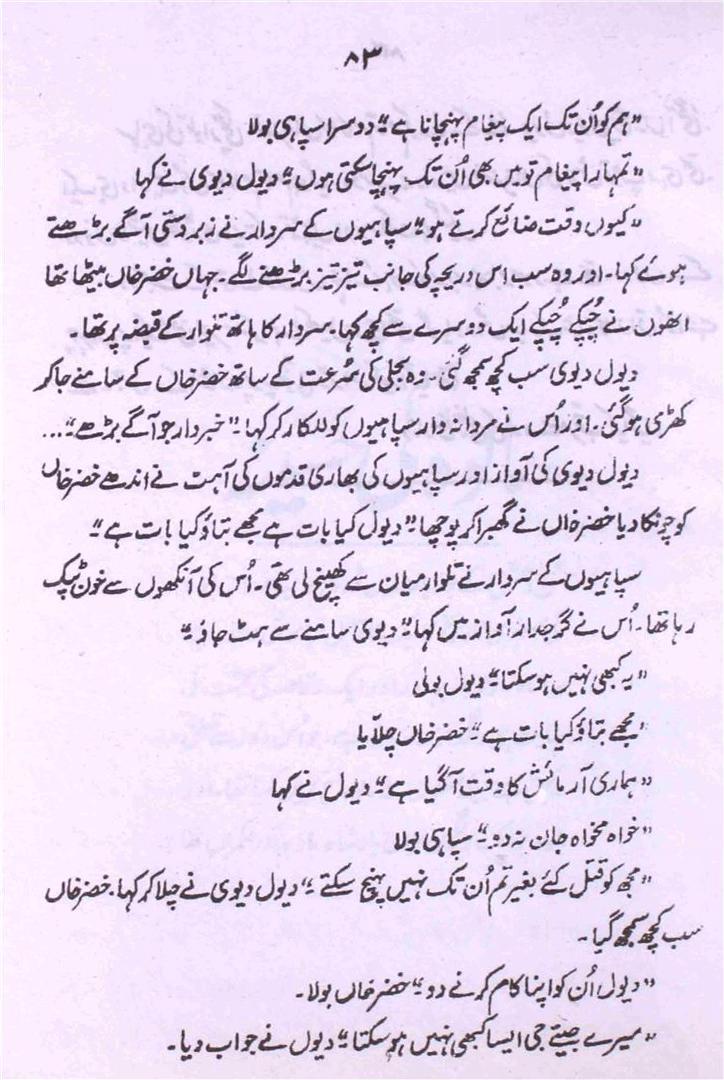 ۸۳
"ہم کو اُن تک ایک پیغام پہنچانا ہے" دوسرا سپاہی بولا
"تمہارا پیغام تو میں بھی اُن تک پہنچا سکتی ہوں" دیول دیوی نے کہا
"کیوں وقت ضائع کرتے ہو" سپاہیوں کے سردار نے زبردستی آگے بڑھتے
ہوئے کہا۔ اور وہ سب اس دریچہ کی جانب تیز تیز بڑھنے لگے۔ جہاں خضر خاں بیٹھا تھا
انھوں نے چُپکے چُپکے ایک دوسرے سے کچھ کہا۔ سردار کا ہاتھ تلوار کے قبضہ پر تھا۔
دیول دیوی سب کچھ سمجھ گئی۔ وہ بجلی کی سُرعت کے ساتھ خضر خاں کے سامنے جا کر
کھڑی ہو گئی۔ اور اُس نے مردانہ وار سپاہیوں کو للکار کر کہا۔ "خبردار جو آگے بڑھے"...
دیول دیوی کی آواز اور سپاہیوں کی بھاری قدموں کی آہٹ نے اندھے خضر خاں
کو چونکا دیا خضر خاں نے گھبرا کر پوچھا "دیول کیا بات ہے مجھے بتاؤ کیا بات ہے"
سپاہیوں کے سردار نے تلوار میان سے کھینچ لی تھی۔ اُس کی آنکھوں سے خون ٹپک
رہا تھا۔ اُس نے گرجدار آواز میں کہا "دیوی سامنے سے ہٹ جاؤ"
"یہ کبھی نہیں ہو سکتا" دیول بولی
"مجھے بتاؤ کیا بات ہے" خضر خاں چلّایا
"ہماری آزمائش کا وقت آ گیا ہے" دیول نے کہا
"خواہ مخواہ جان نہ دو" سپاہی بولا
"مجھ کو قتل کئے بغیر تم اُن تک نہیں پہنچ سکتے" دیول دیوی نے چلا کر کہا۔ خضر خاں
سب کچھ سمجھ گیا۔
"دیول اُن کو اپنا کام کرنے دو" خضر خاں بولا۔
"میرے جیتے جی ایسا کبھی نہیں ہو سکتا" دیول نے جواب دیا۔